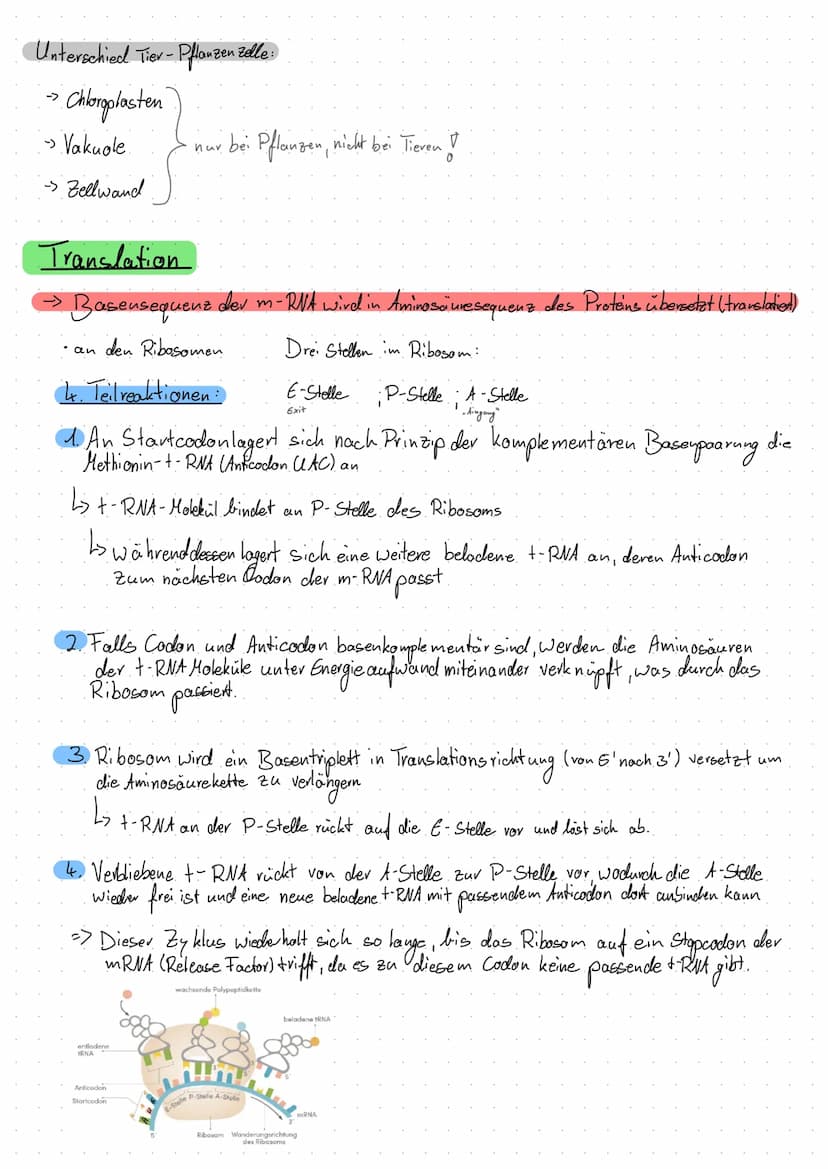 Unterschied Tier-Pflanzenzelle:
-> Chloroplasten
-> Vakuole
nur bei Pflanzen, nicht bei Tieren!
-> Zellwand
Translation
-> Basensequenz der m-RNA wird in Aminosäuresequenz des Proteins übersetzt (translation)
• an den Ribosomen
Drei Stellen im Ribosom:
4. Teilreaktionen:
E-Stelle ; P-Stelle ; A-Stelle
Exit
"Eingang"
1. An Startcodon lagert sich nach Prinzip der komplementären Basenpaarung die
Methionin-t-RNA (Anticodon UAC) an
↳ t-RNA-Molekül bindet an P-Stelle des Ribosoms
↳ währenddessen lagert sich eine weitere beladene t-RNA an, deren Anticodon
zum nächsten Codon der m-RNA passt
2. Falls Codon und Anticodon basenkomplementär sind, werden die Aminosäuren
der t-RNA Moleküle unter Energieaufwand miteinander verknüpft, was durch das
Ribosom passiert.
3. Ribosom wird ein Basentriplett in Translationsrichtung (von 5' nach 3') versetzt um
die Aminosäurekette zu verlängern
↳ t-RNA an der P-Stelle rückt auf die E-Stelle vor und löst sich ab.
4. Verbliebene t-RNA rückt von der A-Stelle zur P-Stelle vor, wodurch die A-Stelle
wieder frei ist und eine neue beladene t-RNA mit passendem Anticodon dort anbinden kann
=> Dieser Zyklus wiederholt sich so lange, bis das Ribosom auf ein Stopcodon der
mRNA (Release Factor) trifft, da es zu diesem Codon keine passende t-RNA gibt.
wachsende Polypeptidkette
beladene tRNA
entladene
tRNA
Anticodon
Startcodon
E-Stelle P-Stelle A-Stelle
mRNA
5'
3'
Ribosom
Wanderungsrichtung
des Ribosoms